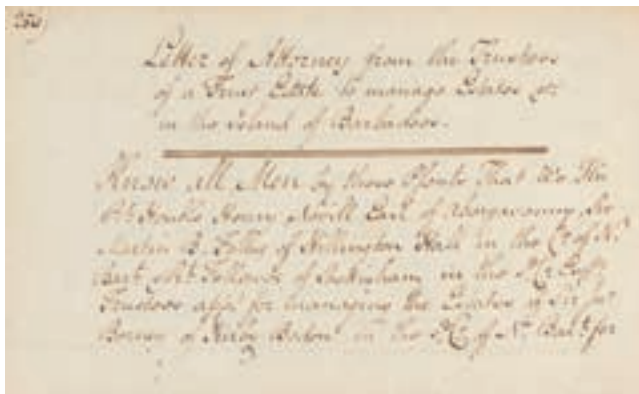 Letter of Attorney from the Trustees
of a Trust Estate to manage Estates &c
in the island of Barbadoes.
Know all Men by these Psents That We The
Rt. Honble Henry Nevill Earl of Abergavenny Sir
Martin B. Folkes of Hillington Hall in the Co. of N.
Bart. Robt. Fellowes of Shotesham in the sd Co Esqr.
Trustees for managing the Estates of Sir
Berney of Kirby Bedon in the sd Co. of N. Bart. for